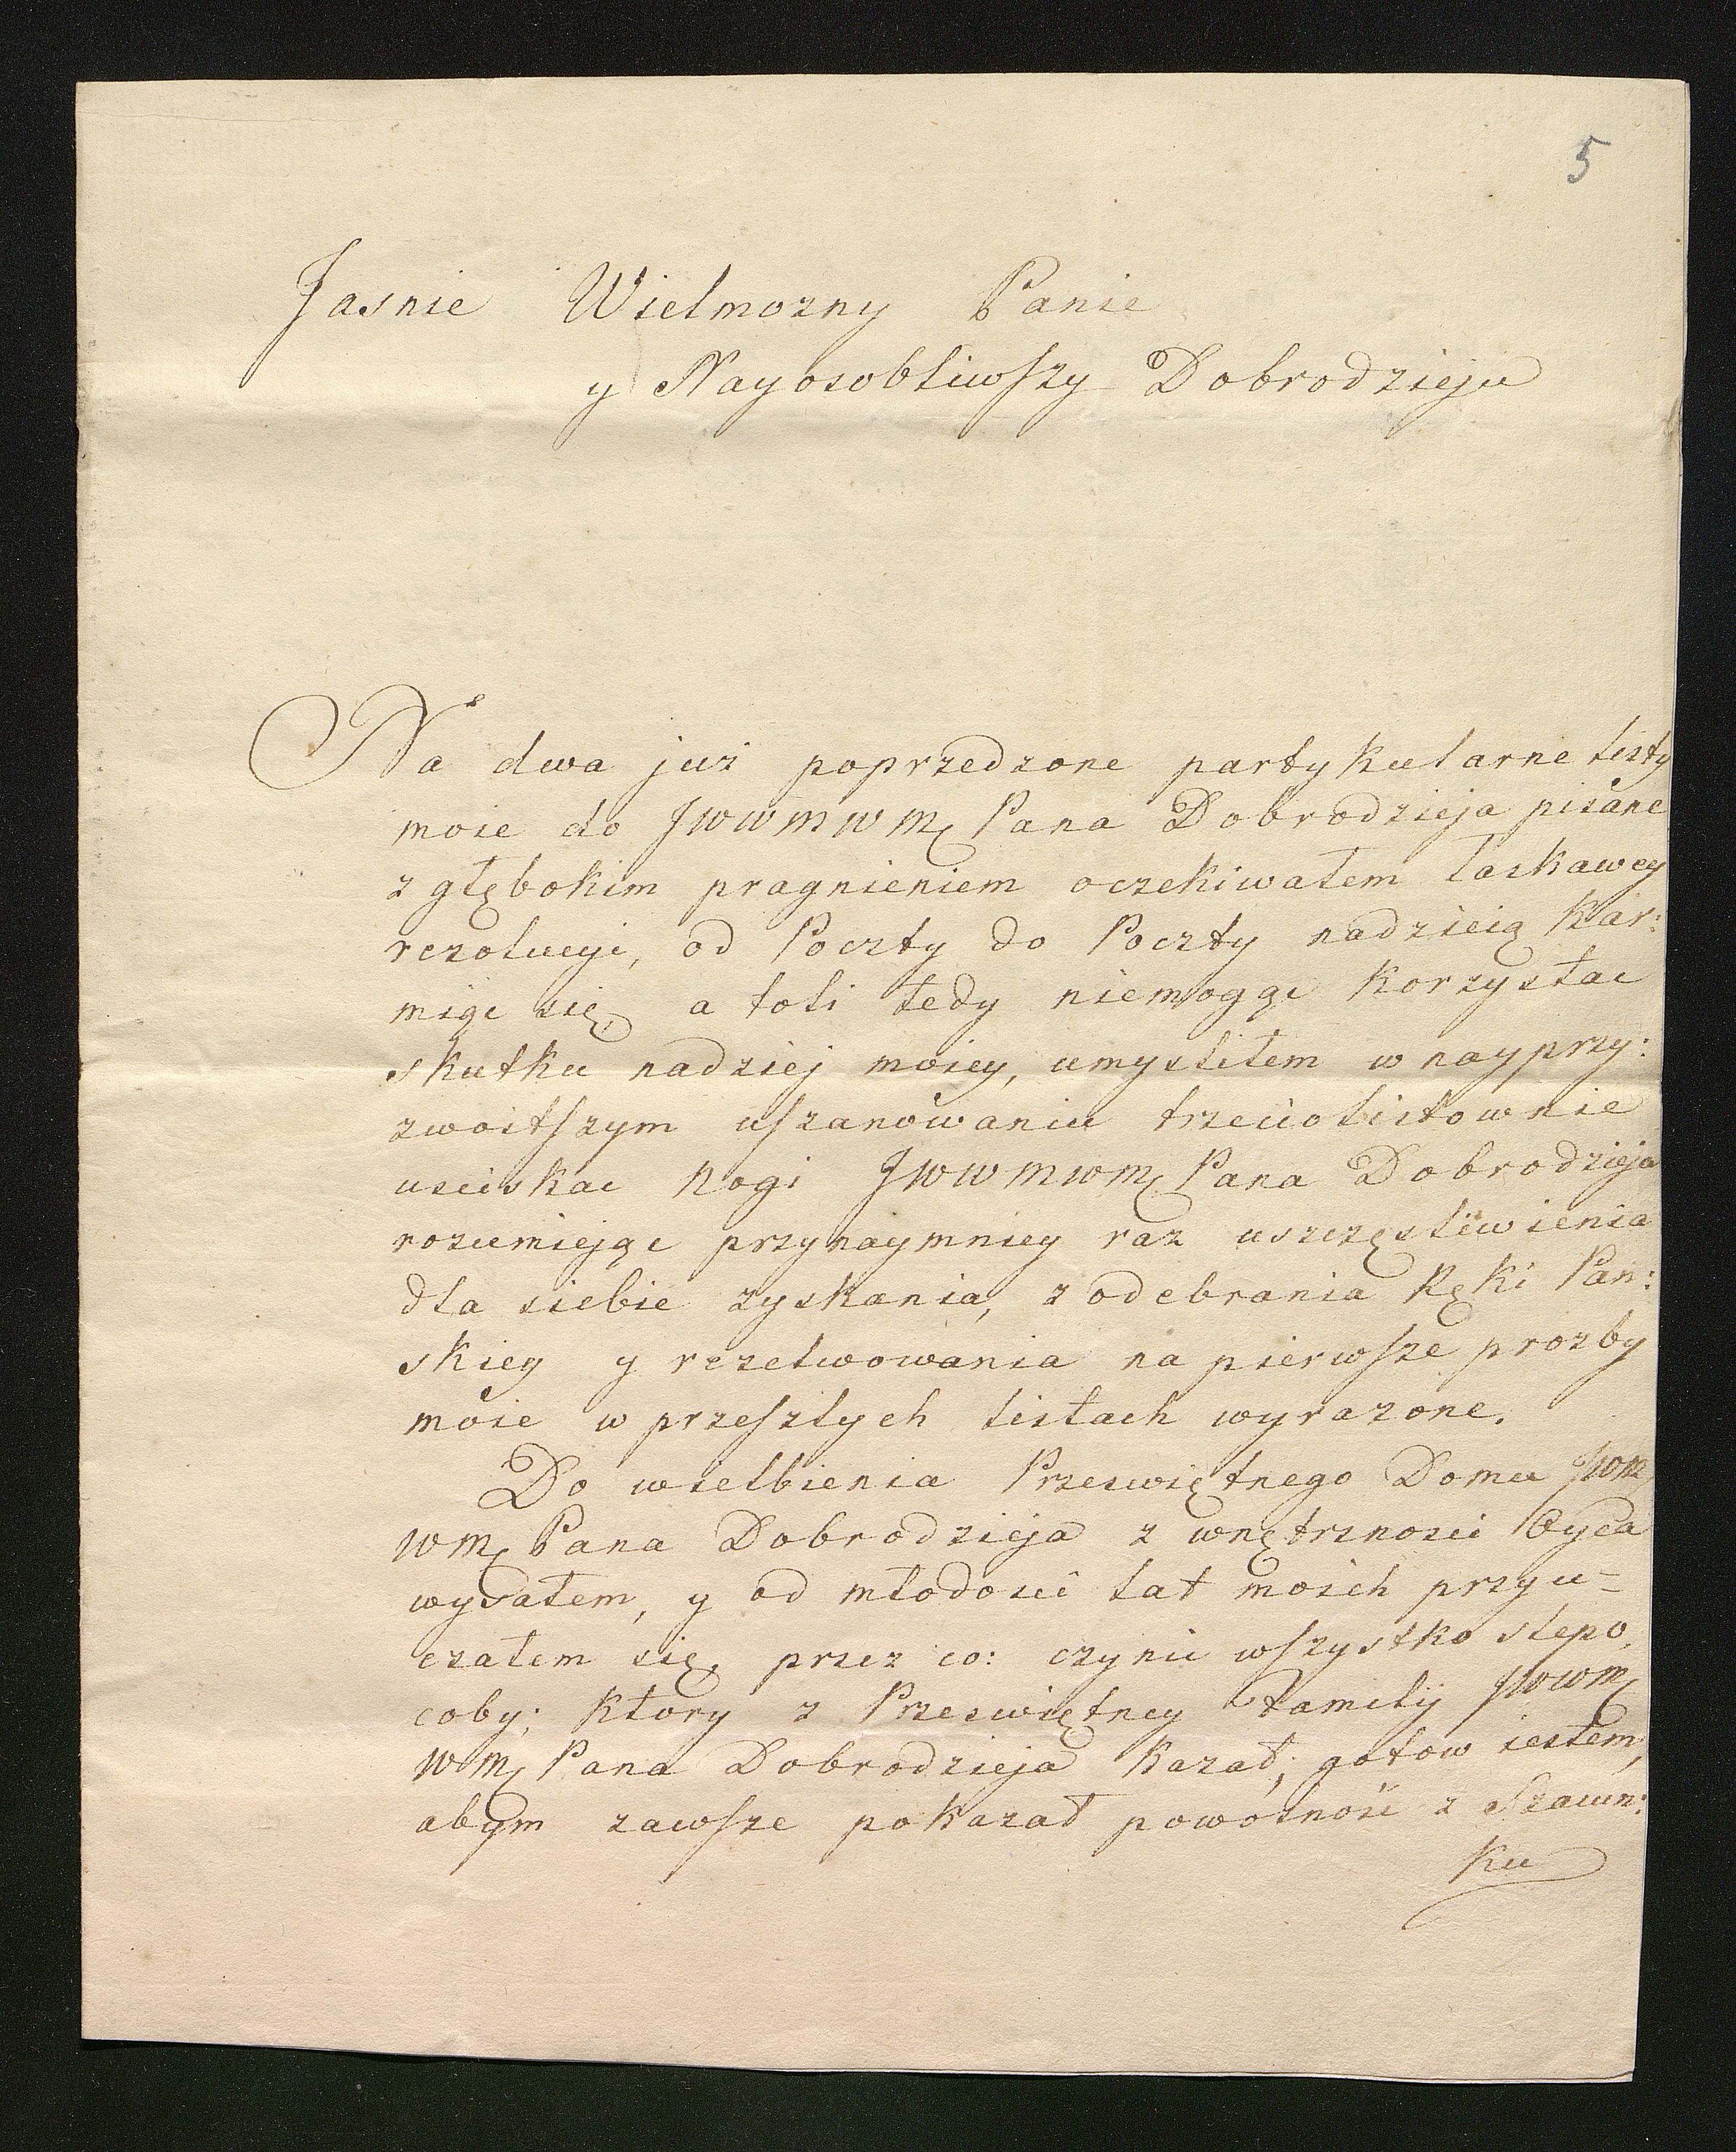 5
Jasnie Wielmozny Panie
y Nayosobliwszy Dobrodzieju
Na dwa juz poprzedzone partykularne listy
moie do JWWMWM Pana Dobrodzieja pisane
z głębokim pragnieniem oczekiwałem łaskawey
rezolucyi, od Poczty do Poczty nadzieią kar:
miąc się, a toli tedy niemogąc korzystac
skutku nadziej moiey, umysliłem w nayprzy:
zwoitszym uszanowaniu trzeciolistownie
usciskac Nogi JWWMWM Pana Dobrodzieja
rozumiejąc przynaymniey raz uszczęsliwienia
dla siebie zyskania, z odebrania Ręki Pan:
skiey y rezelwowania na pierwsze prozby
moie w przeszłych listach wyrazone.
Do wielbienia Przeswiętnego Domu JWM
WM Pana Dobrodzieja z wnętrznosci Oyca
wysałem, y od młodosci lat moich przyu=
czałem się, przez co: czynic wszystko slepo,
coby; ktory z Przeswiętney Familij JWWM
WM Pana Dobrodzieja kazał; gotow iestem,
abym zawsze pokazał powolność z Szacun:
ku